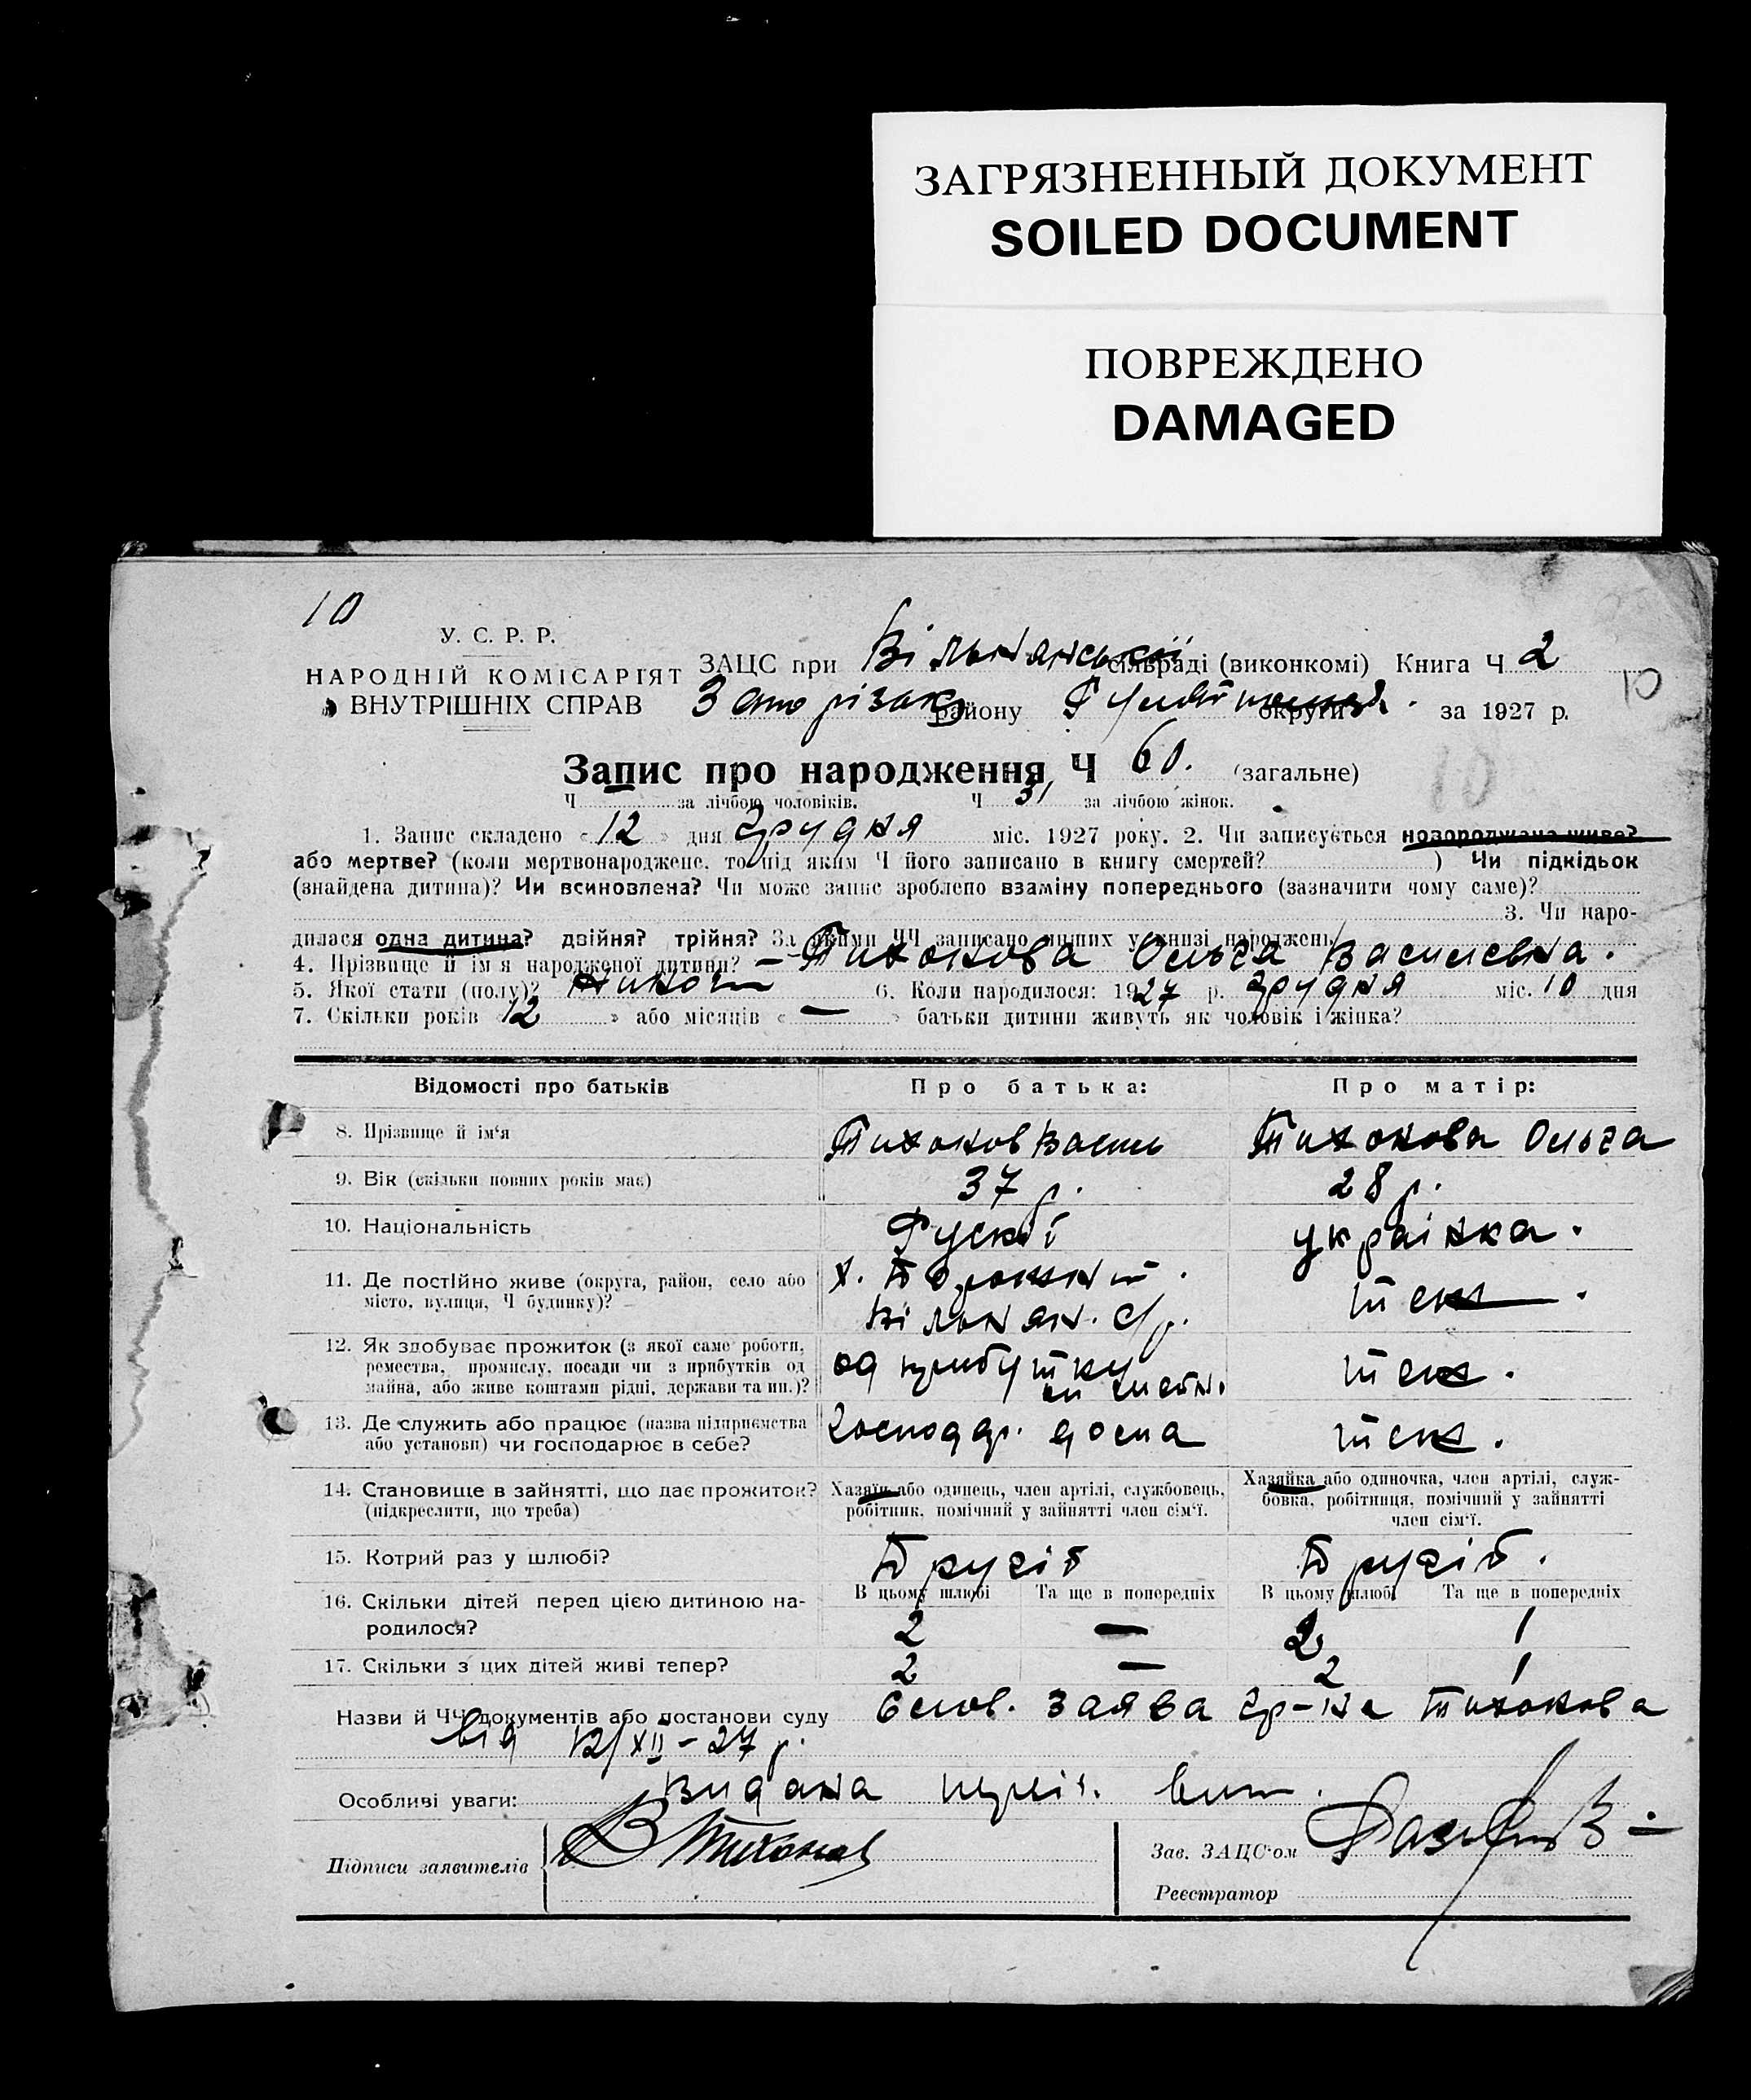 ЗАГРЯЗНЕННЫЙ ДОКУМЕНТ
SOILED DOCUMENT
ПОВРЕЖДЕНО
DAMAGED
10
У. С. Р. Р.
НАРОДНІЙ КОМІСАРІЯТ
ВНУТРІШНІХ СПРАВ
ЗАЦС при сільраді (виконкомі) Книга Ч 2
10
району округи за 1927 р.
Запис про народження Ч 60. (загальне)
10
Ч за лічбою чоловіків. Ч 31 за лічбою жінок.
1. Запис складено « 12 » дня Грудня міс. 1927 року. 2. Чи записується новороджена живе?
або мертве? (коли мертвонароджене, то під яким Ч його записано в книгу смертей? ) Чи підкідьок
(знайдена дитина)? Чи всиновлена? Чи може запис зроблено взаміну попереднього (зазначити чому саме)?
3. Чи наро-
дилася одна дитина? двійня? трійня? За якими ЧЧ записано инших у книзі народжень
4. Прізвище й ім'я народженої дитини? – Тихонова Ольга Василевна.
5. Якої стати (полу)? 6. Коли народилося: 1927 р. Грудня міс. 10 дня
7. Скільки років « 12 » або місяців « — » батьки дитини живуть як чоловік і жінка?
Відомості про батьків Про батька: Про матір:
8. Прізвище й ім'я Тихонов Василь Тихонова Ольга
9. Вік (скільки повних років має) 37 р. 28 р.
10. Національність Руский українка.
11. Де постійно живе (округа, район, село або
місто, вулиця, Ч будинку)?
12. Як здобуває прожиток (з якої саме роботи,
ремества, промислу, посади чи з прибутків од
майна, або живе коштами рідні, держави та ин.)?
од прибутку
13. Де служить або працює (назва підприємства
або установи) чи господарює в себе?
господар. дома
14. Становище в зайнятті, що дає прожиток?
(підкреслити, що треба)
Хазяїн або одинець, член артілі, службовець,
робітник, помічний у зайнятті член сім'ї.
Хазяйка або одиночка, член артілі, служ-
бовка, робітниця, помічний у зайнятті
член сім'ї.
15. Котрий раз у шлюбі? Другій Другій.
В цьому шлюбі Та ще в попередніх В цьому шлюбі Та ще в попередніх
16. Скільки дітей перед цією дитиною на-
родилося?
2 — 2 1
17. Скільки з цих дітей живі тепер? 2 — 2 1
Назви й ЧЧ документів або постанови суду заява гр-на Тихонова
від 12/XII – 27 р.
Особливі уваги: Видана
Підписи заявителів В Тихонов
Зав. ЗАЦС'ом
Реєстратор